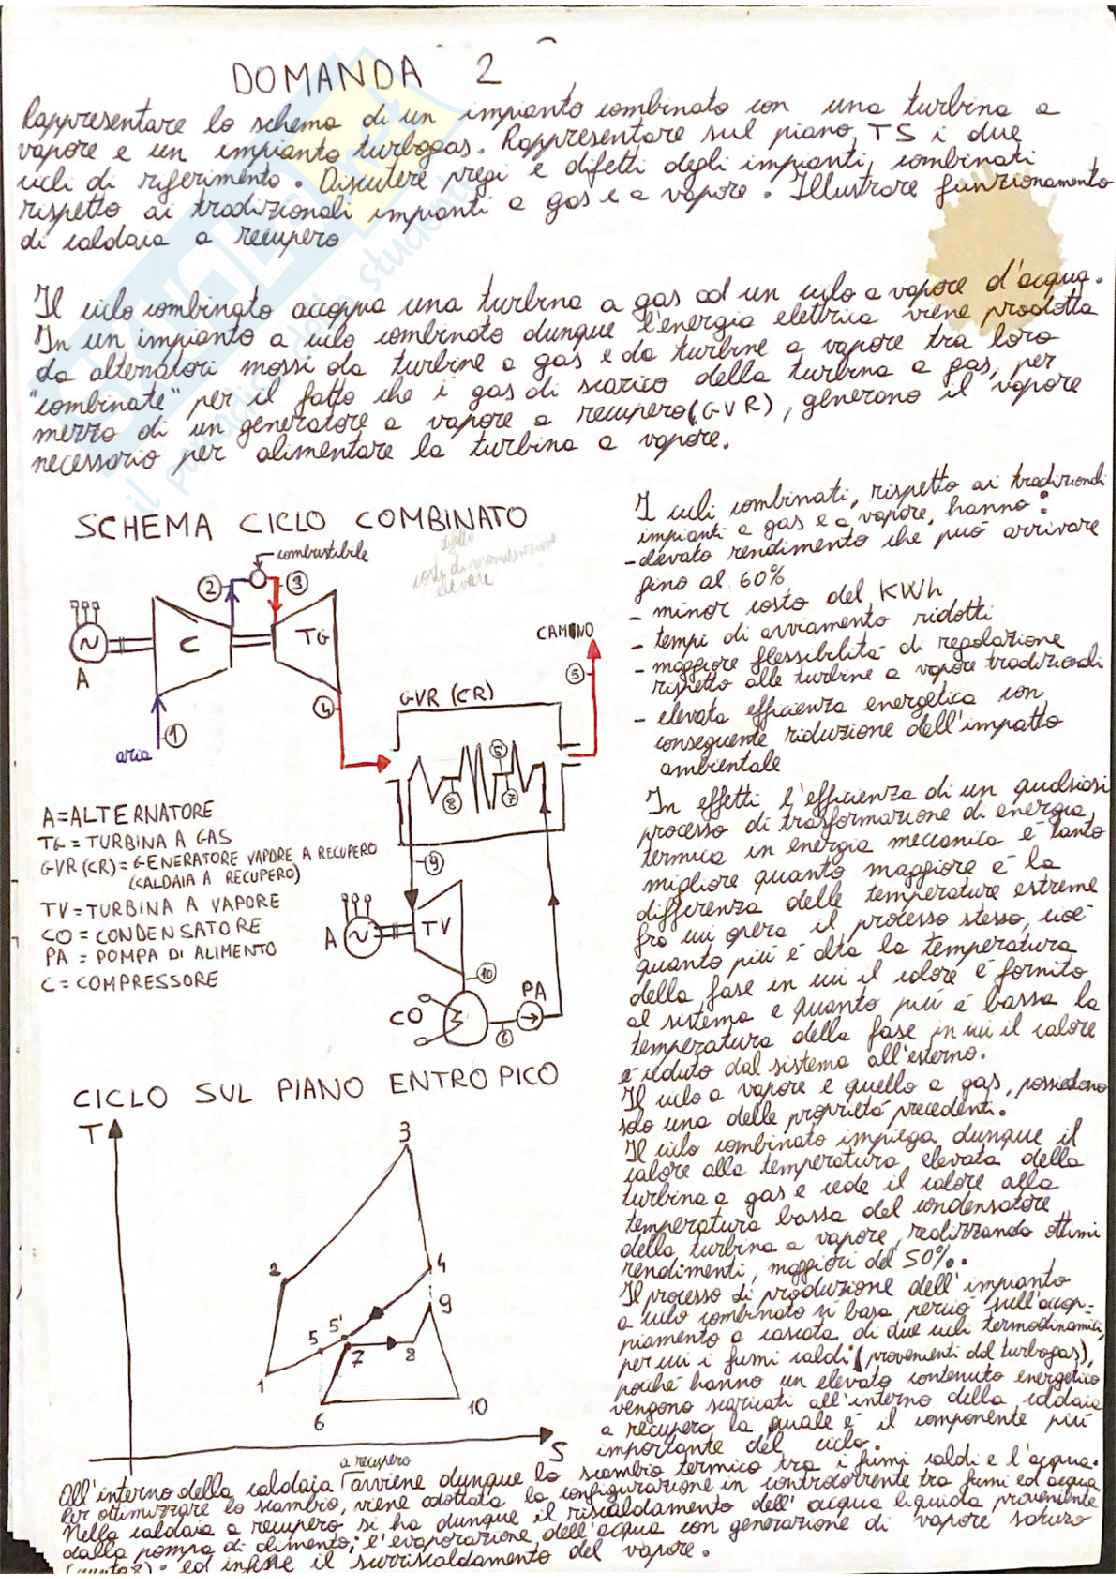 DOMANDA 2
Rappresentare lo schema di un impianto combinato con una turbina a
vapore e un impianto turbogas. Rappresentare sul piano TS i due
cicli di riferimento. Discutere pregi e difetti degli impianti combinati
rispetto ai tradizionali impianti a gas e a vapore. Illustrare funzionamento
di caldaia a recupero
Il ciclo combinato accoppia una turbina a gas ad un ciclo a vapore d'acqua.
In un impianto a ciclo combinato dunque l'energia elettrica viene prodotta
da alternatori mossi da turbine a gas e da turbine a vapore tra loro
"combinate" per il fatto che i gas di scarico della turbina a gas, per
mezzo di un generatore a vapore a recupero (GVR), generano il vapore
necessario per alimentare la turbina a vapore.
SCHEMA CICLO COMBINATO
combustibile
2
3
C
TG
A
1
aria
4
CAMINO
5
GVR (CR)
8
6
7
9
A
TV
10
CO
6
PA
A=ALTERNATORE
TG=TURBINA A GAS
GVR(CR)=GENERATORE VAPORE A RECUPERO
(CALDAIA A RECUPERO)
TV=TURBINA A VAPORE
CO=CONDENSATORE
PA=POMPA DI ALIMENTO
C=COMPRESSORE
I cicli combinati, rispetto ai tradizionali
impianti a gas e a vapore, hanno:
-elevato rendimento che può arrivare
fino al 60%
- minor costo del KWh
- tempi di avviamento ridotti
- maggiore flessibilità di regolazione
rispetto alle turbine a vapore tradizionali
- elevata efficienza energetica con
conseguente riduzione dell'impatto
ambientale
In effetti l'efficienza di un qualsiasi
processo di trasformazione di energia
termica in energia meccanica è tanto
migliore quanto maggiore è la
differenza delle temperature estreme
fra cui opera il processo stesso, cioè
quanto più è alta la temperatura
della fase in cui il calore è fornito
al sistema e quanto più è bassa la
temperatura della fase in cui il calore
è ceduto dal sistema all'esterno.
Il ciclo a vapore e quello a gas, possiedono
solo una delle proprietà precedenti.
Il ciclo combinato impiega dunque il
calore alla temperatura elevata della
turbina a gas e cede il calore alla
temperatura bassa del condensatore
della turbina a vapore, realizzando ottimi
rendimenti, maggiori del 50%.
Il processo di produzione dell'impianto
a ciclo combinato si basa perciò sull'accop-
piamento a cascata di due cicli termodinamici,
per cui i fumi caldi (provenienti dal turbogas),
poiché hanno un elevato contenuto energetico
vengono scaricati all'interno della caldaia
a recupero la quale è il componente più
importante del ciclo.
CICLO SUL PIANO ENTROPICO
T
3
2
4
9
5
5'
7
8
1
6
10
S
a recupero
All'interno della caldaia avviene dunque lo scambio termico tra i fumi caldi e l'acqua.
Per ottimizzare lo scambio, viene adottata la configurazione in controcorrente tra fumi ed acqua
Nella caldaia a recupero si ha dunque il riscaldamento dell'acqua liquida proveniente
dalla pompa di alimento, l'evaporazione dell'acqua con generazione di vapore saturo
ed infine il surriscaldamento del vapore.